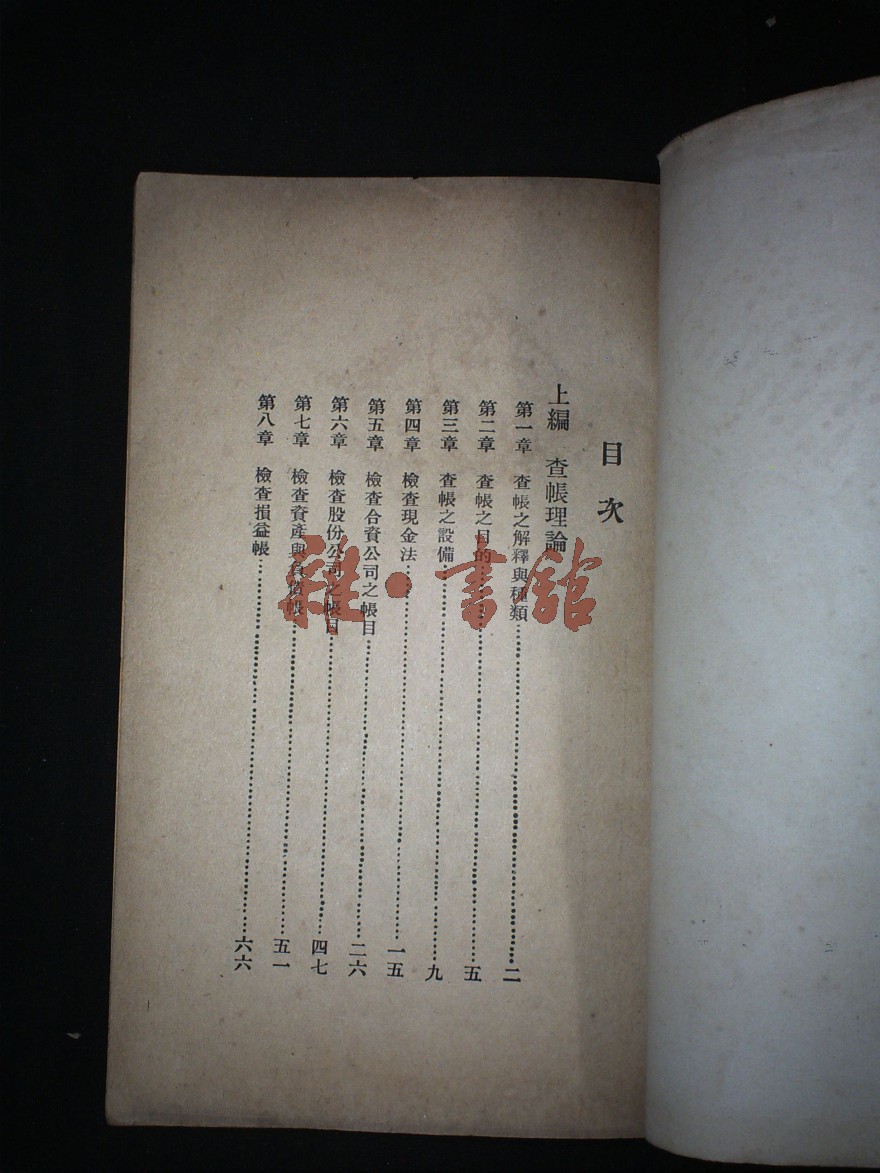 目次
上編 查帳理論
第一章 查帳之解釋與種類………二
第二章 查帳之目的………五
第三章 查帳之設備………九
第四章 檢查現金法………一五
第五章 檢查合資公司之帳目………二六
第六章 檢查股份公司之帳目………四七
第七章 檢查資產與負債帳………五一
第八章 檢查損益帳………六六
雜·書館